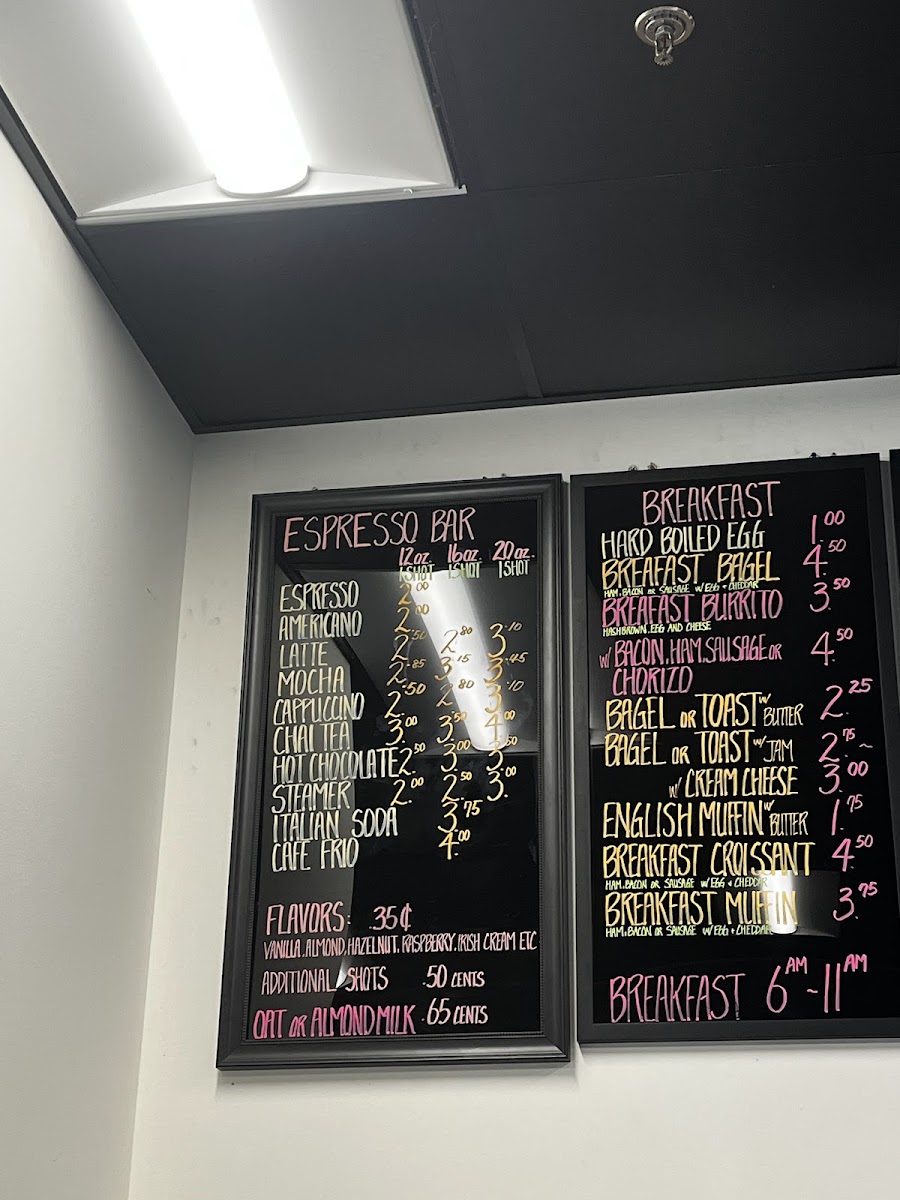 ESPRESSO BAR
12 oz. 16 oz. 20 oz.
1 SHOT 1 SHOT 1 SHOT
ESPRESSO 2.00
AMERICANO 2.00
LATTE 2.50 2.80 3.10
MOCHA 2.85 3.15 3.45
CAPPUCCINO 2.50 2.80 3.10
CHAI TEA 3.00 3.50 4.00
HOT CHOCOLATE 2.50 3.00 3.50
STEAMER 2.00 2.50 3.00
ITALIAN SODA 3.75
CAFE FRIO 4.00
FLAVORS: .35¢
VANILLA, ALMOND, HAZELNUT, RASPBERRY, IRISH CREAM ETC
ADDITIONAL SHOTS .50 CENTS
OAT OR ALMOND MILK .65 CENTS
BREAKFAST
HARD BOILED EGG 1.00
BREAFAST BAGEL 4.50
HAM, BACON OR SAUSAGE W/ EGG + CHEDDAR
BREAFAST BURRITO 3.50
HASHBROWN, EGG AND CHEESE
W/ BACON, HAM, SAUSAGE OR 4.50
CHORIZO
BAGEL OR TOAST W/ BUTTER 2.25
BAGEL OR TOAST W/ JAM 2.75~
W/ CREAM CHEESE 3.00
ENGLISH MUFFIN W/ BUTTER 1.75
BREAKFAST CROISSANT 4.50
HAM, BACON OR SAUSAGE W/ EGG + CHEDDAR
BREAKFAST MUFFIN 3.75
HAM, BACON OR SAUSAGE W/ EGG + CHEDDAR
BREAKFAST 6AM ~ 11AM